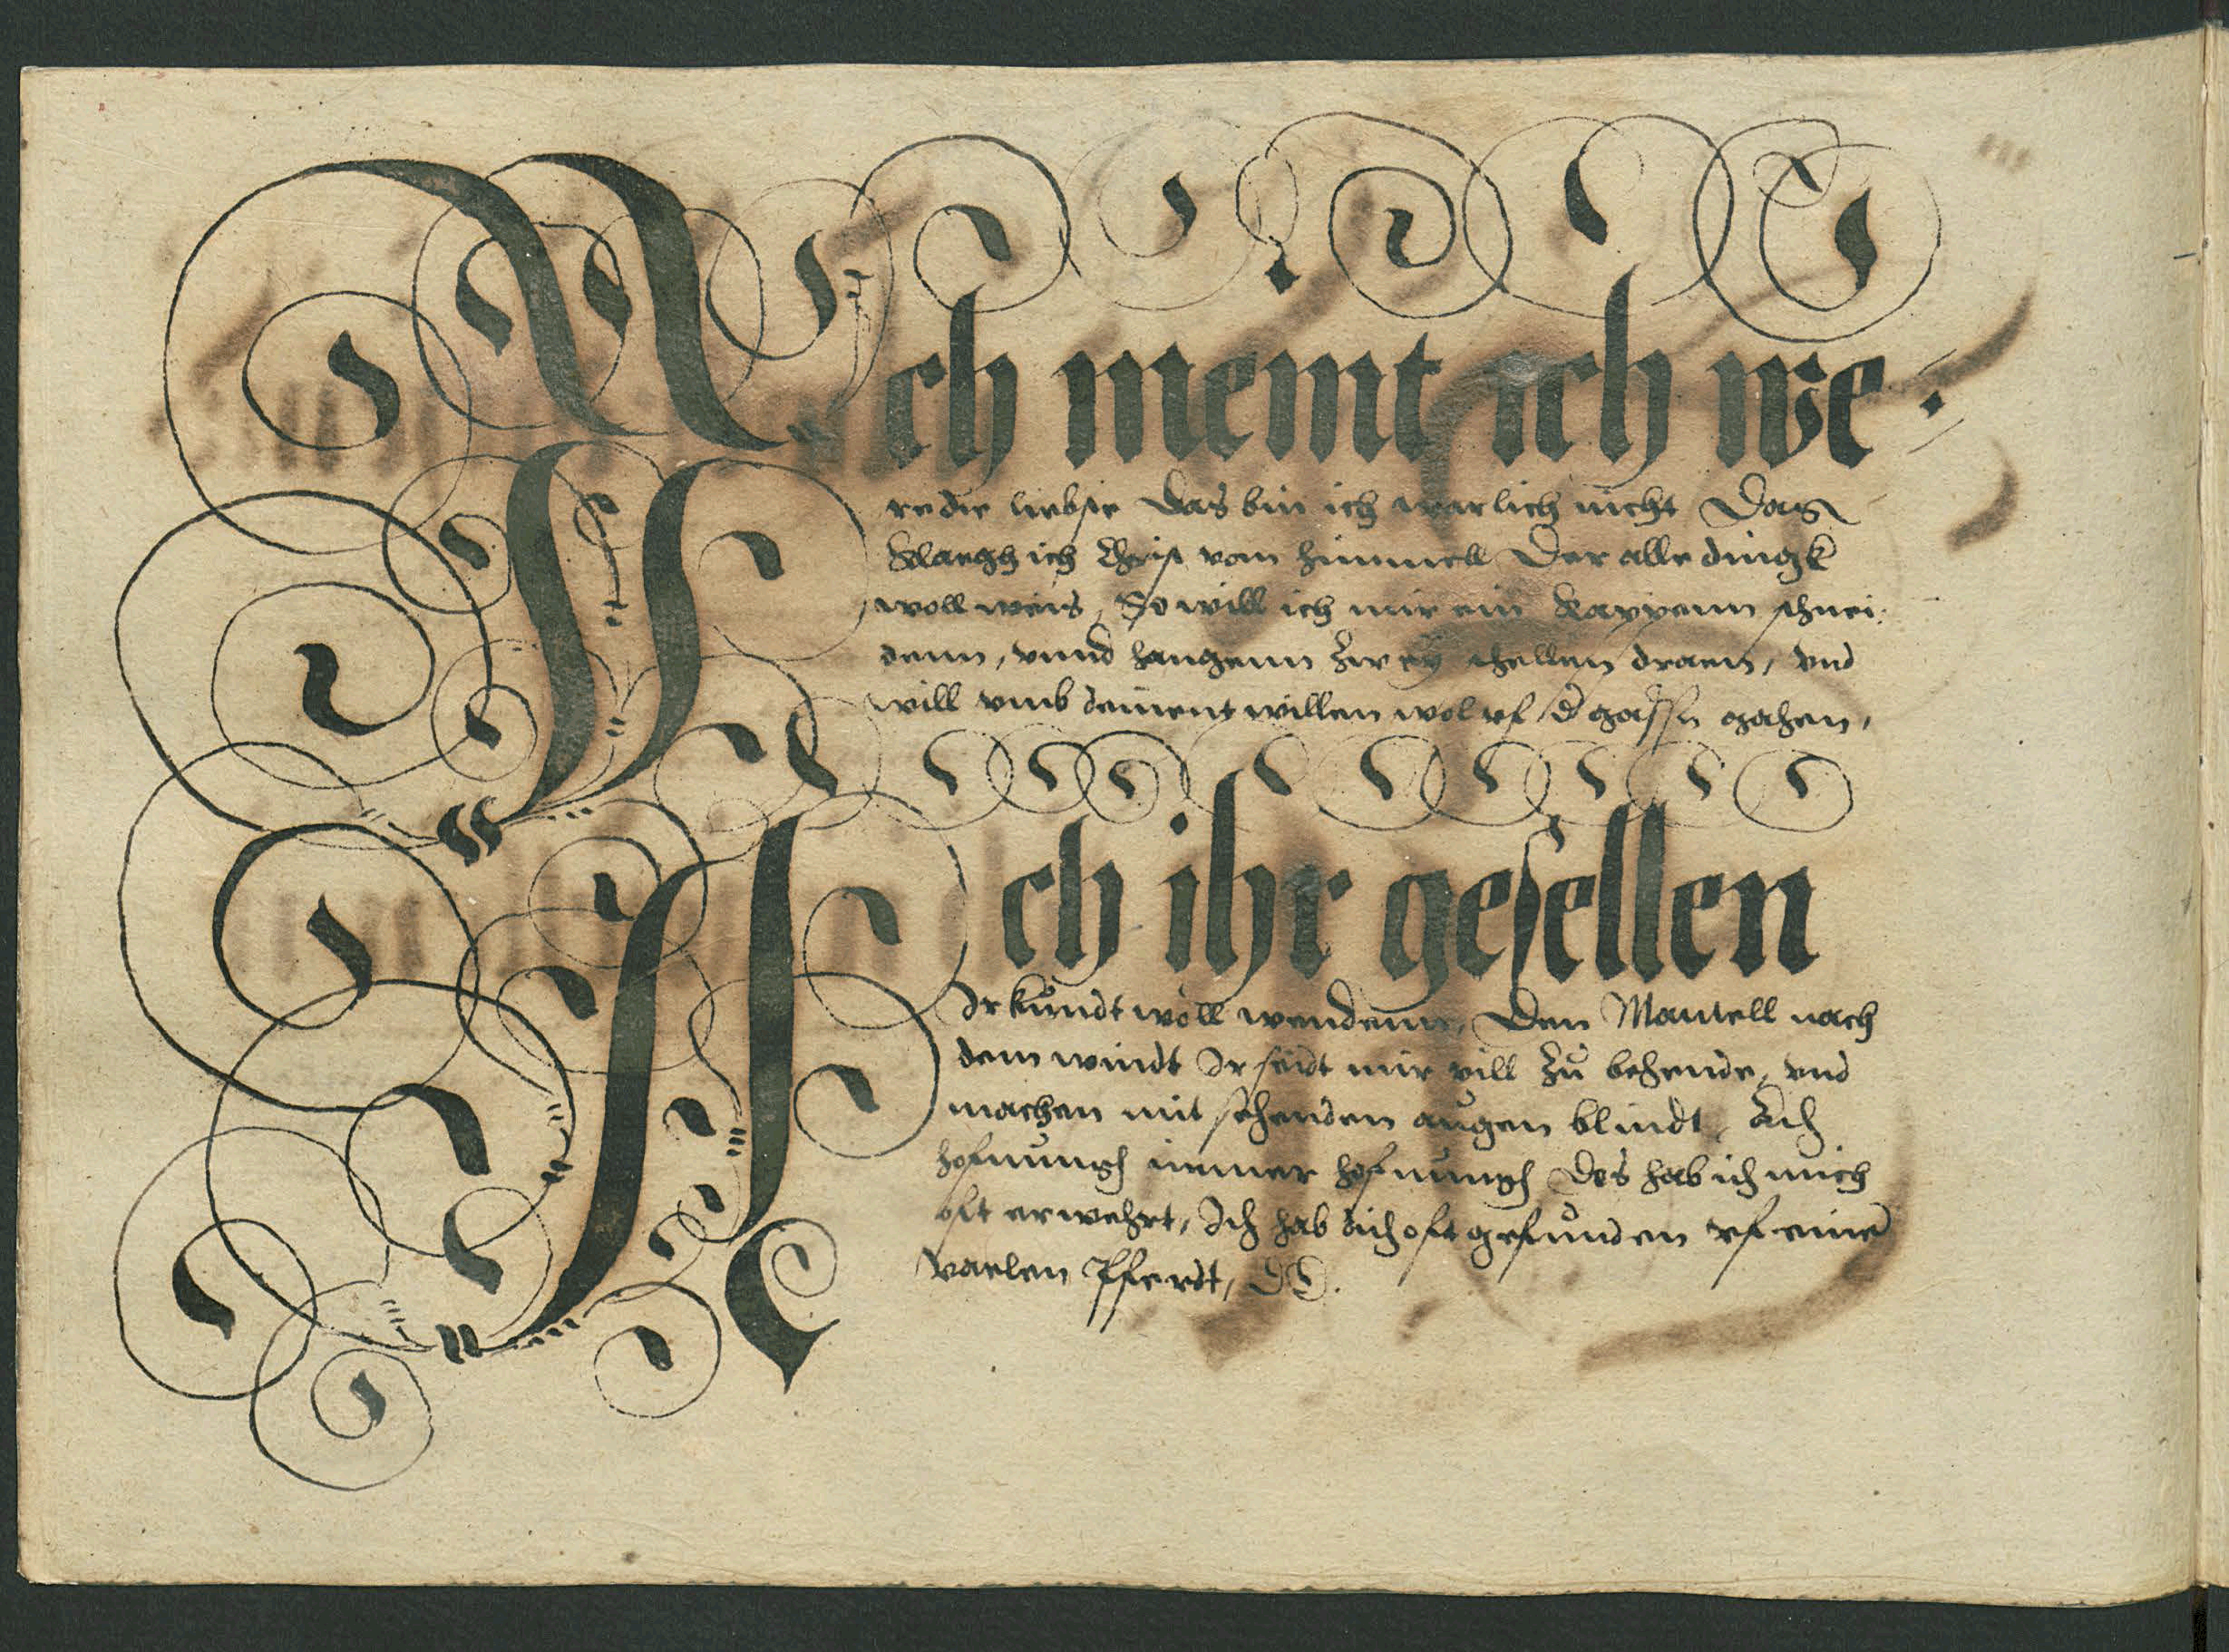 Ich meint ich we
re die liebste das bin ich warlich nicht Das
klaegh ich Christ vom himmell Der alle dingk
woll weis, So will ich mir ein kappenn schnei
denn, vnnd hangenn zwey schellen draen, vnd
will vmb deinent willen wol vf d gassen gahen,
Ach ihr gesellen
Ir kundt woll wendenn, Den Mantell nach
dem windt Ir seidt mir vill zu behende, vnd
machen mit sehenden augen blindt, Ach
hofnungh immer hofnungh Des hab ich mich
oft erwehrt, Ich hab dich oft gefunden vf eine
vaelen Pferdt,